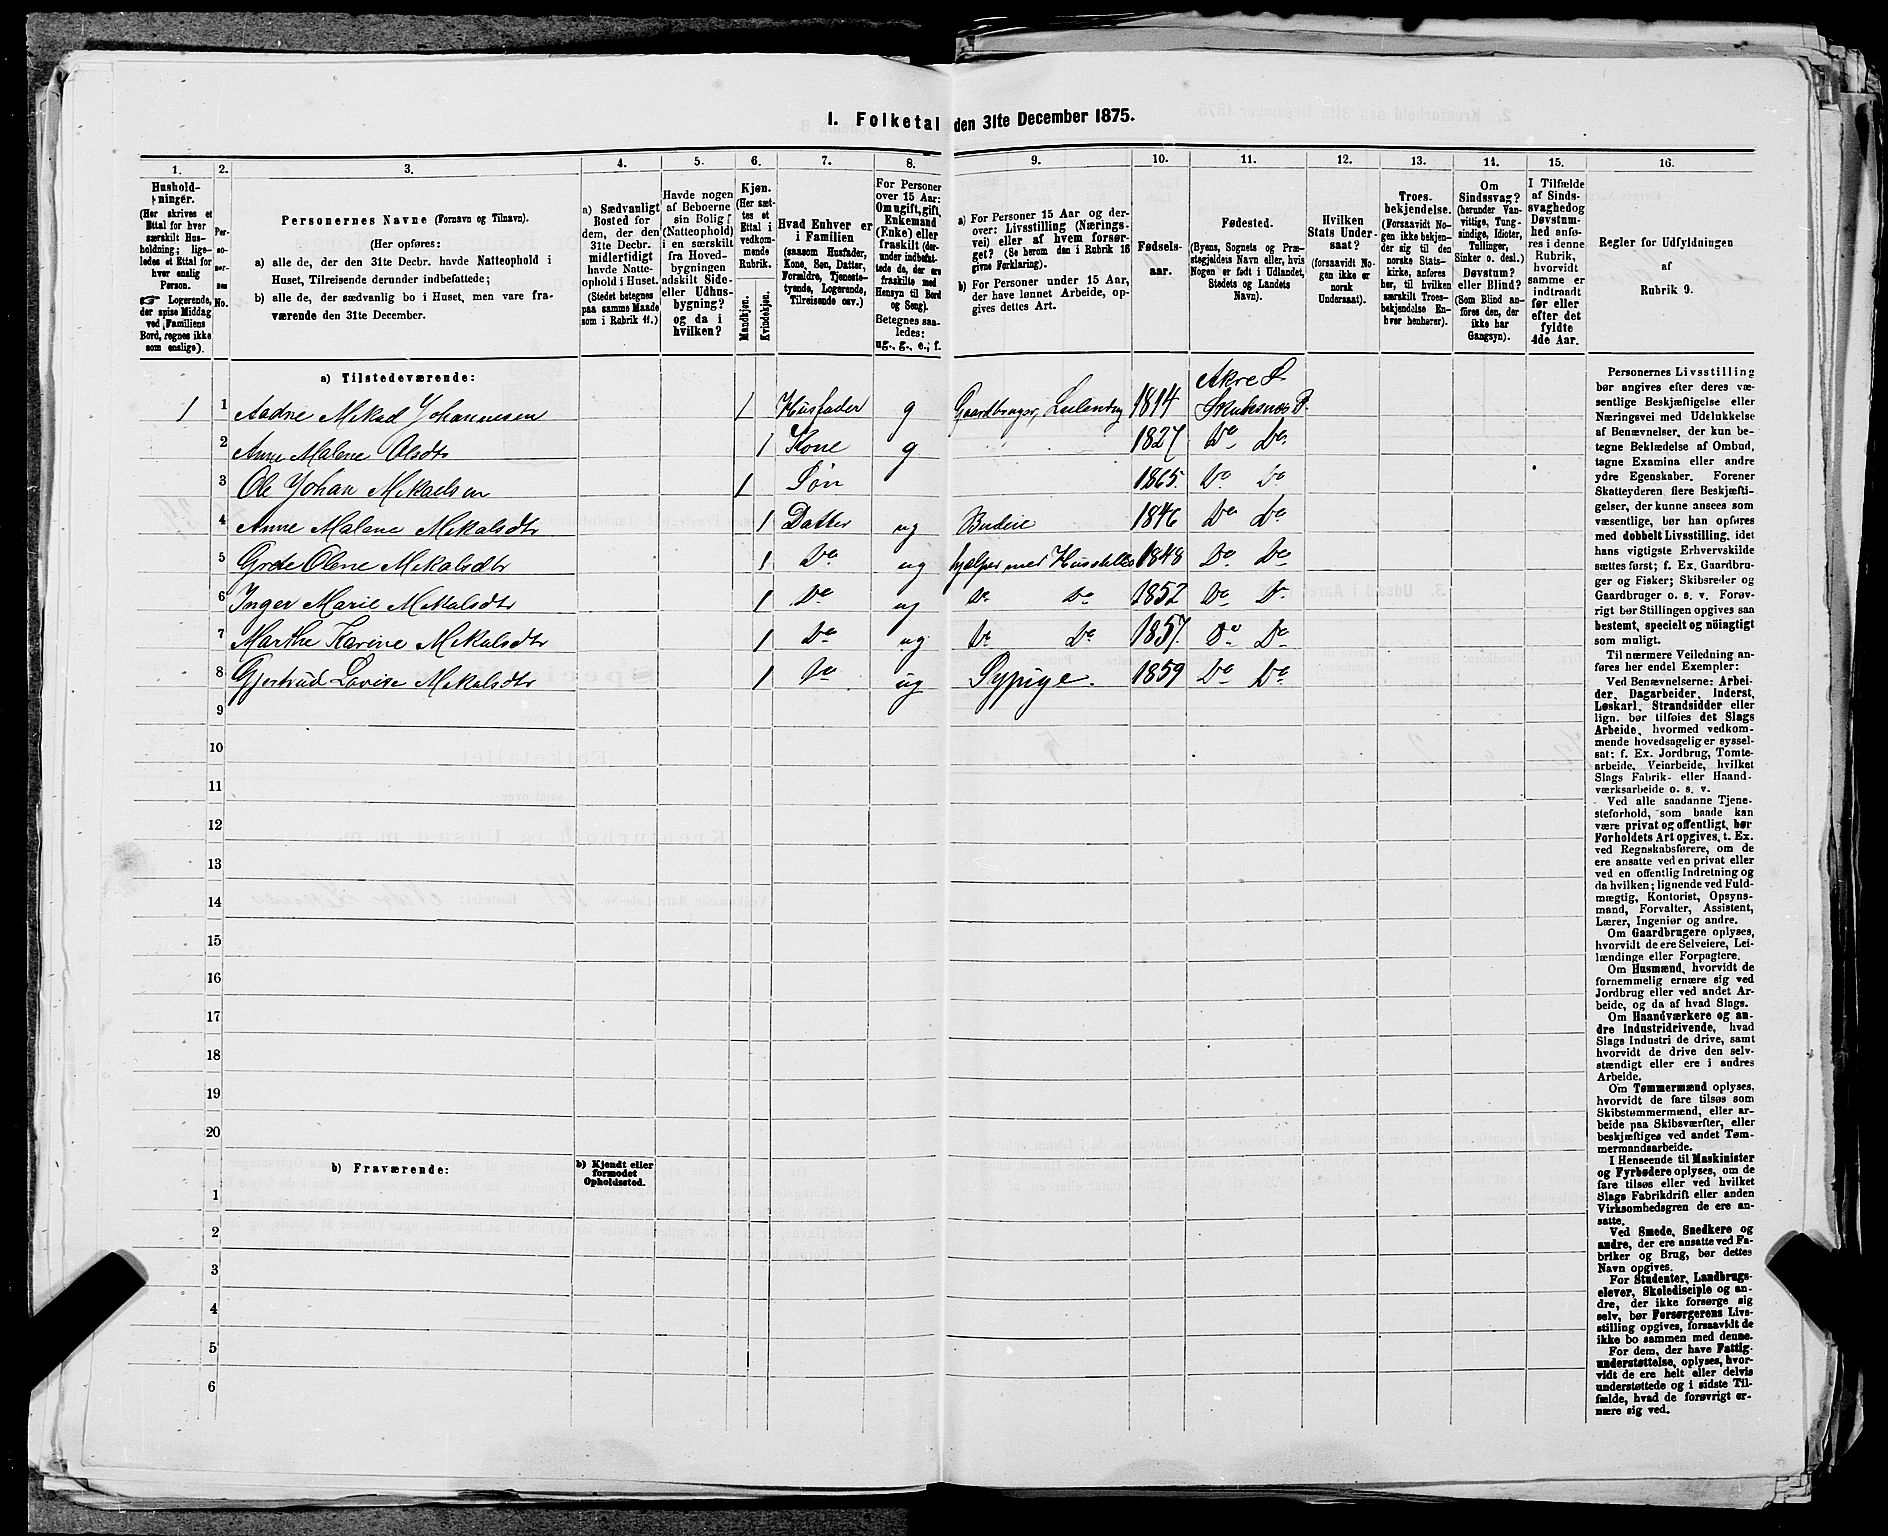 1. Folketal den 31te December 1875.
1. 2. 3. 4. 5. 6. 7. 8. 9. 10. 11. 12. 13. 14. 15. 16.
Hushold-
ninger.
(Her skrives et
Ettal for hver
særskilt Hus-
holdning; lige-
ledes et Ettal for
hver enslig
Person.
☞ Logerende,
der spise Middag
ved Familiens
Bord, regnes ikke
som enslige).
Per-
so-
ner-
nes
No.
Personernes Navne (Fornavn og Tilnavn).
(Her opføres:
a) alle de, der den 31te Decbr. havde Natteophold i
Huset, Tilreisende derunder indbefattede;
b) alle de, der sædvanlig bo i Huset, men vare fra-
værende den 31te December.
a) Sædvanligt
Bosted for
dem, der den
31te Decbr.
midlertidigt
havde Natte-
ophold i Huset.
(Stedet betegnes
paa samme Maade
som i Rubrik 11.)
Havde nogen
af Beboerne
sin Bolig
(Natteophold)
i en særskilt
fra Hoved-
bygningen
adskilt Side-
eller Udhus-
bygning?
og da i
hvilken?
Kjøn.
(Her sæt-
tes et
Ettal i
vedkom-
mende
Rubrik.
Mandkjøn.
Kvindekjøn.
Hvad Enhver er
i Familien
(saasom Husfader,
Kone, Søn, Datter,
Forældre, Tjeneste-
tyende, Logerende,
Tilreisende osv.)
For Personer
over 15 Aar:
Om ugift, gift,
Enkemand
(Enke) eller
fraskilt (der-
under indbefat-
tede de, der ere
fraskilte med
Hensyn til Bord
og Seng).
Betegnes saa-
ledes:
ug., g., e.; f.
a) For Personer 15 Aar og der-
over: Livsstilling (Nærings-
vei) eller af hvem forsør-
get? (Se herom den i Rubrik 16
givne Forklaring).
b) For Personer under 15 Aar,
der have lønnet Arbeide, op-
gives dettes Art.
Fødsels-
aar.
Fødested.
(Byens, Sognets og Præ-
stegjeldets Navn eller, hvis
Nogen er født i Udlandet,
Stedets og Landets
Navn).
Hvilken
Stats Under-
saat?
(forsaavidt No-
gen ikke er
norsk
Undersaat).
Troes-
bekjendelse.
(Forsaavidt No-
gen ikke bekjen-
der sig til den
norske Stats-
kirke, anføres
her, til hvilken
særskilt Troes-
bekjendelse En-
hver henhører).
Om
Sindssvag?
(herunder Van-
vittige, Tung-
sindige, Idioter,
Tullinger,
Sinker o. desl.)
Døvstum?
eller Blind?
(Som Blind an-
føres den, der
ikke har
Gangsyn).
I Tilfælde
af Sinds-
svaghed og
Døvstum-
hed anfø-
res i denne
Rubrik,
hvorvidt
samme er
indtraadt
før eller
efter det
fyldte
4de Aar.
Regler for Udfyldningen
af
Rubrik 9.
a) Tilstedeværende:
Akre S.
1 1 Aadne Mikal Johannesen 1 Husfader g Gaardbruger, Leilending 1814 Skudesnæs P.
2 Anne Malene Olsdtr 1 Kone g 1827 Do Do
3 Ole Johan Mikaelsen 1 Søn 1865 Do Do
4 Anne Malene Mikalsdtr 1 Datter ug Budeie 1846 Do Do
5 Grete Olene Mikalsdtr 1 Do ug hjælper med Husstellet 1848 Do Do
6 Inger Marie Mikalsdtr 1 Do ug Do Do 1852 Do Do
7 Marthe Karine Mikalsdtr 1 Do ug Do Do 1857. Do Do
8 Gjertrud Lovise Mikalsdtr 1 Do ug Sypige. 1859 Do Do
9
10
11
12
13
14
15
16
17
18
19
20
b) Fraværende:
b) Kjendt eller
formodet
Opholdssted.
1
2
3
4
5
6
Personernes Livsstilling
bør angives efter deres væ-
sentlige Beskjæftigelse eller
Næringsvei med Udelukkelse
af Benævnelser, der kun be-
tegne Beklædelse af Ombud,
tagne Examina eller andre
ydre Egenskaber. Forener
Skatteyderen flere Beskjæfti-
gelser, der kunne ansees som
væsentlige, bør han opføres
med dobbelt Livsstilling, idet
hans vigtigste Erhvervskilde
sættes først; f. Ex. Gaardbru-
ger og Fisker; Skibsreder og
Gaardbruger o. s. v. Forøv-
rigt bør Stillingen opgives saa
bestemt, specielt og nøiagtigt
som muligt.
Til nærmere Veiledning an-
føres her endel Exempler:
Ved Benævnelserne: Arbei-
der, Dagarbeider, Inderst,
Løskarl, Strandsidder eller
lign. bør tilføies det Slags
Arbeide, hvormed vedkom-
mende hovedsagelig er syssel-
sat; f. Ex. Jordbrug, Tomte-
arbeide, Veiarbeide, hvilket
Slags Fabrik- eller Haand-
værksarbeide o. s. v.
Ved alle saadanne Tjene-
steforhold, som baade kan
være privat og offentligt, bør
Forholdets Art opgives, t. Ex.
ved Regnskabsførere, om de
ere ansatte ved en privat eller
ved en offentlig Indretning og
da hvilken; lignende ved Fuld-
mægtig, Kontorist, Opsyns-
mand, Forvalter, Assistent,
Lærer, Ingeniør og andre.
Om Gaardbrugere oplyses,
hvorvidt de ere Selveiere, Lei-
lændinge eller Forpagtere.
Om Husmænd, hvorvidt de
fornemmelig ernære sig ved
Jordbrug eller ved andet Ar-
beide, og da af hvad Slags.
Om Haandværkere og an-
dre Industridrivende, hvad
Slags Industri de drive, samt
hvorvidt de drive den selv-
stændigt eller ere i andres
Arbeide.
Om Tømmermænd oplyses,
hvorvidt de fare tilsøs som
Skibstømmermænd, eller ar-
beide paa Skibsværfter, eller
beskjæftiges ved andet Tøm-
mermandsarbeide.
I Henseende til Maskinister
og Fyrbødere oplyses, om de
fare tilsøs eller ved hvilket
Slags Fabrikdrift eller anden
Virksomhedsgren de ere an-
satte.
Ved Smede, Snedkere og
andre, der ere ansatte ved Fa-
briker og Brug, bør dettes
Navn opgives.
For Studenter, Landbrugs-
elever, Skoledisciple og an-
dre, der ikke forsørge sig
selv, bør Forsørgerens Livs-
stilling opgives, forsaavidt de
ikke bo sammen med denne.
For dem, der have Fattig-
understøttelse, oplyses, hvor-
vidt de ere helt eller delvis
understøttede og i sidste Til-
fælde, hvad de forøvrigt er-
nære sig ved.